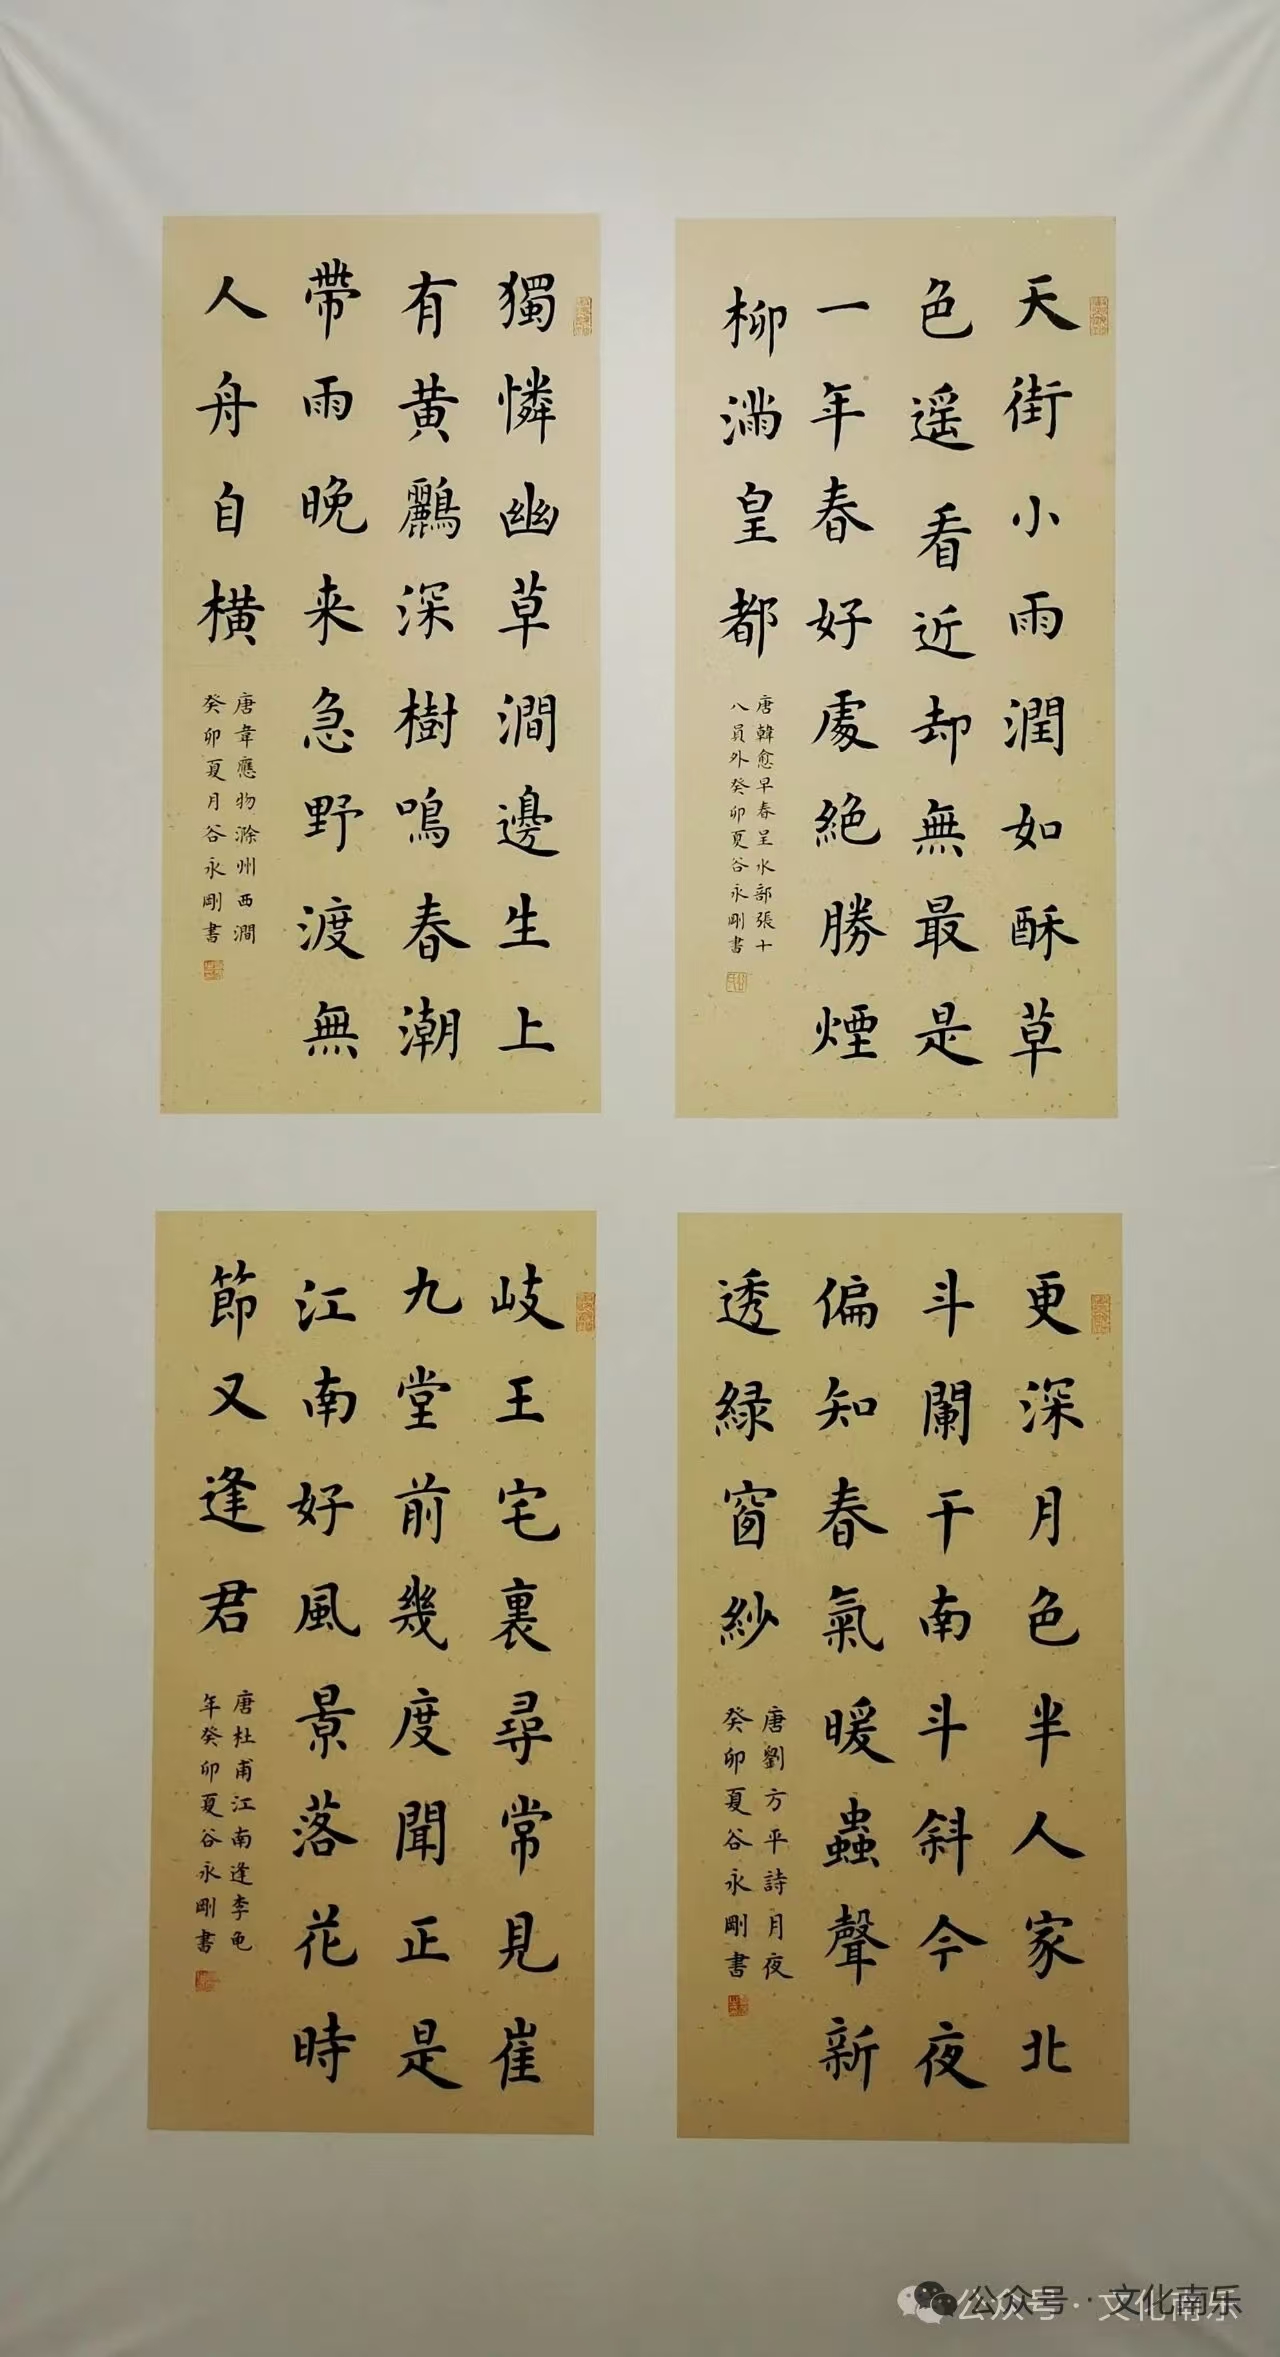 天街小雨潤如酥草
色遥看近却無最是
一年春好處絶勝煙
柳滿皇都
唐韓愈早春呈水部張十
八員外癸卯夏谷永剛書
獨憐幽草澗邊生上
有黄鸝深樹鳴春潮
帶雨晚来急野渡無
人舟自横
唐韋應物滁州西澗
癸卯夏月谷永剛書
更深月色半人家北
斗闌干南斗斜今夜
偏知春氣暖蟲聲新
透緑窗紗
唐劉方平詩月夜
癸卯夏谷永剛書
岐王宅裏尋常見崔
九堂前幾度聞正是
江南好風景落花時
節又逢君
唐杜甫江南逢李龟
年癸卯夏谷永剛書
公众号 · 文化南乐